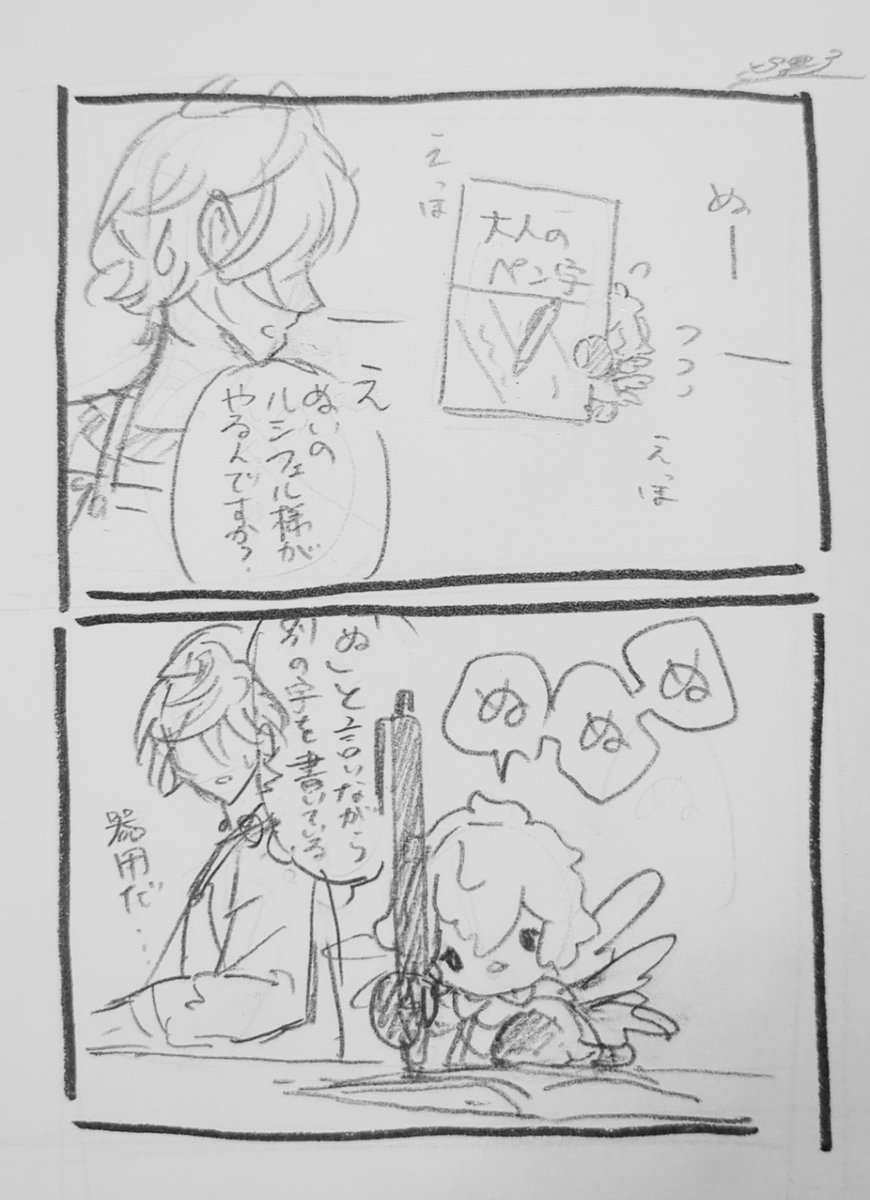 ぬー
えっほ
大人の
ペン字
えっほ
え
ぬいの
ルシフェル様が
やるんですか?
ぬ
ぬ
ぬ
ぬ」と言いながら
別の字を書いている
器用だ…